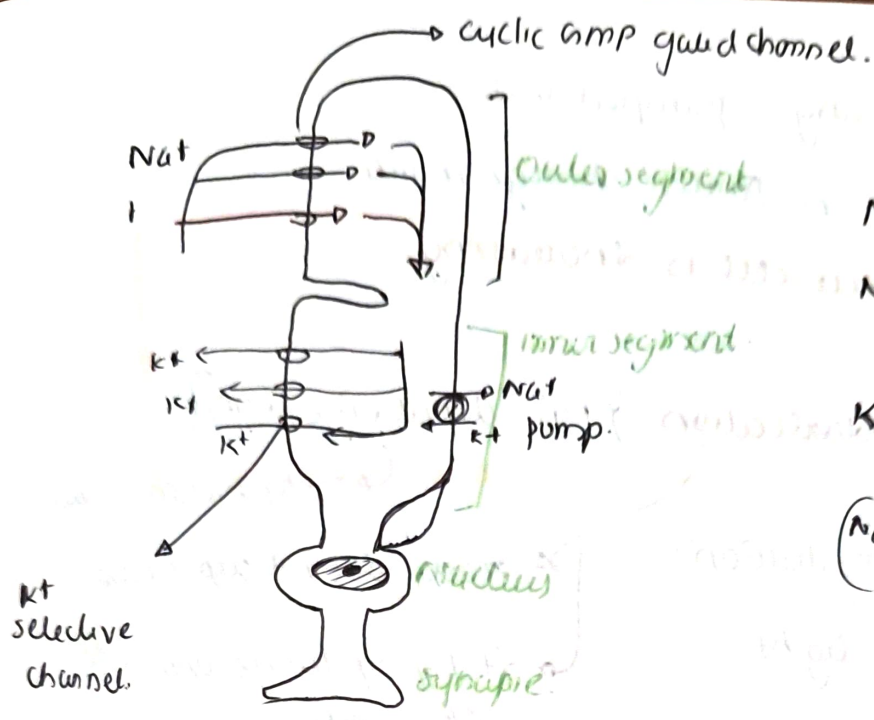 cyclic GMP gated channel.
Na+
outer segment
inner segment
K+
K+
K+
Na+
K+ pump.
K+
selective
channel.
nucleus
synapse